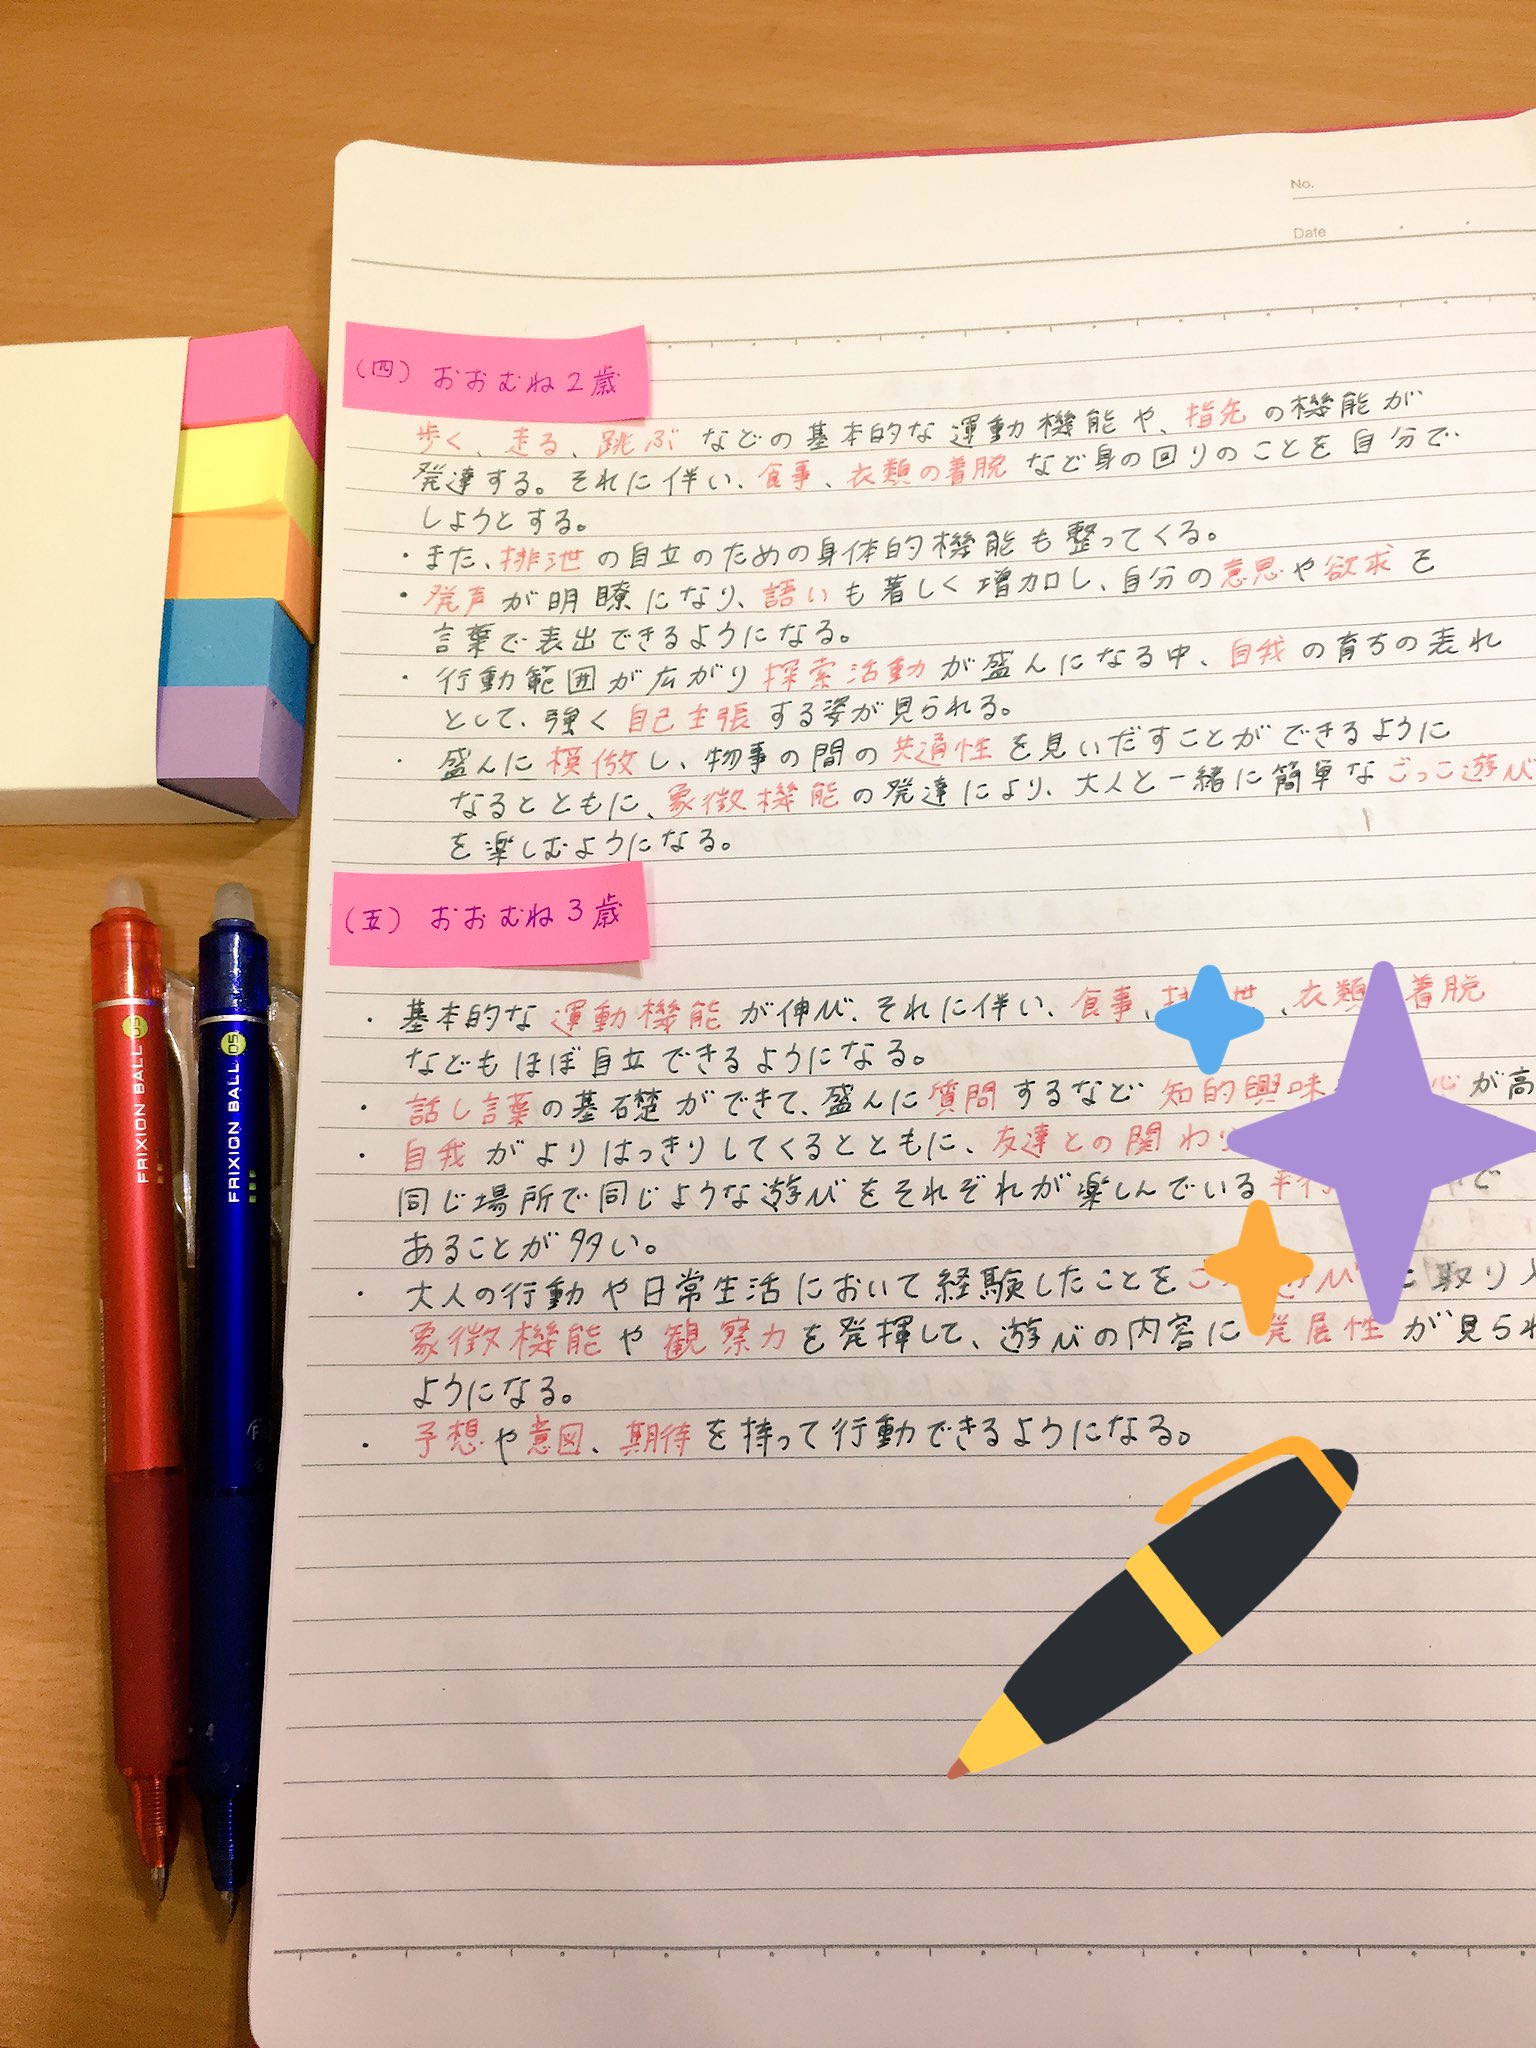 No.
Date
(四) おおむね2歳
歩く、走る、跳ぶなどの基本的な運動機能や、指先の機能が
発達する。それに伴い、食事、衣類の着脱など身の回りのことを自分で
しようとする。
・また、排泄の自立のための身体的機能も整ってくる。
・発声が明瞭になり、語いも著しく増加し、自分の意思や欲求を
言葉で表出できるようになる。
・行動範囲が広がり探索活動が盛んになる中、自我の育ちの表れ
として、強く自己主張する姿が見られる。
・盛んに模倣し、物事の間の共通性を見いだすことができるように
なるとともに、象徴機能の発達により、大人と一緒に簡単なごっこ遊び
を楽しむようになる。
(五) おおむね3歳
・基本的な運動機能が伸び、それに伴い、食事、排泄、衣類 着脱
などもほぼ自立できるようになる。
・話し言葉の基礎ができて、盛んに質問するなど知的興味 心が高
・自我がよりはっきりしてくるとともに、友達との関わり
同じ場所で同じような遊びをそれぞれが楽しんでいる平行 で
あることが多い。
・大人の行動や日常生活において経験したことをご 遊び に取り入
象徴機能や観察力を発揮して、遊びの内容に発展性が見られ
ようになる。
・予想や意図、期待を持って行動できるようになる。
FRIXION BALL 05
FRIXION BALL 05